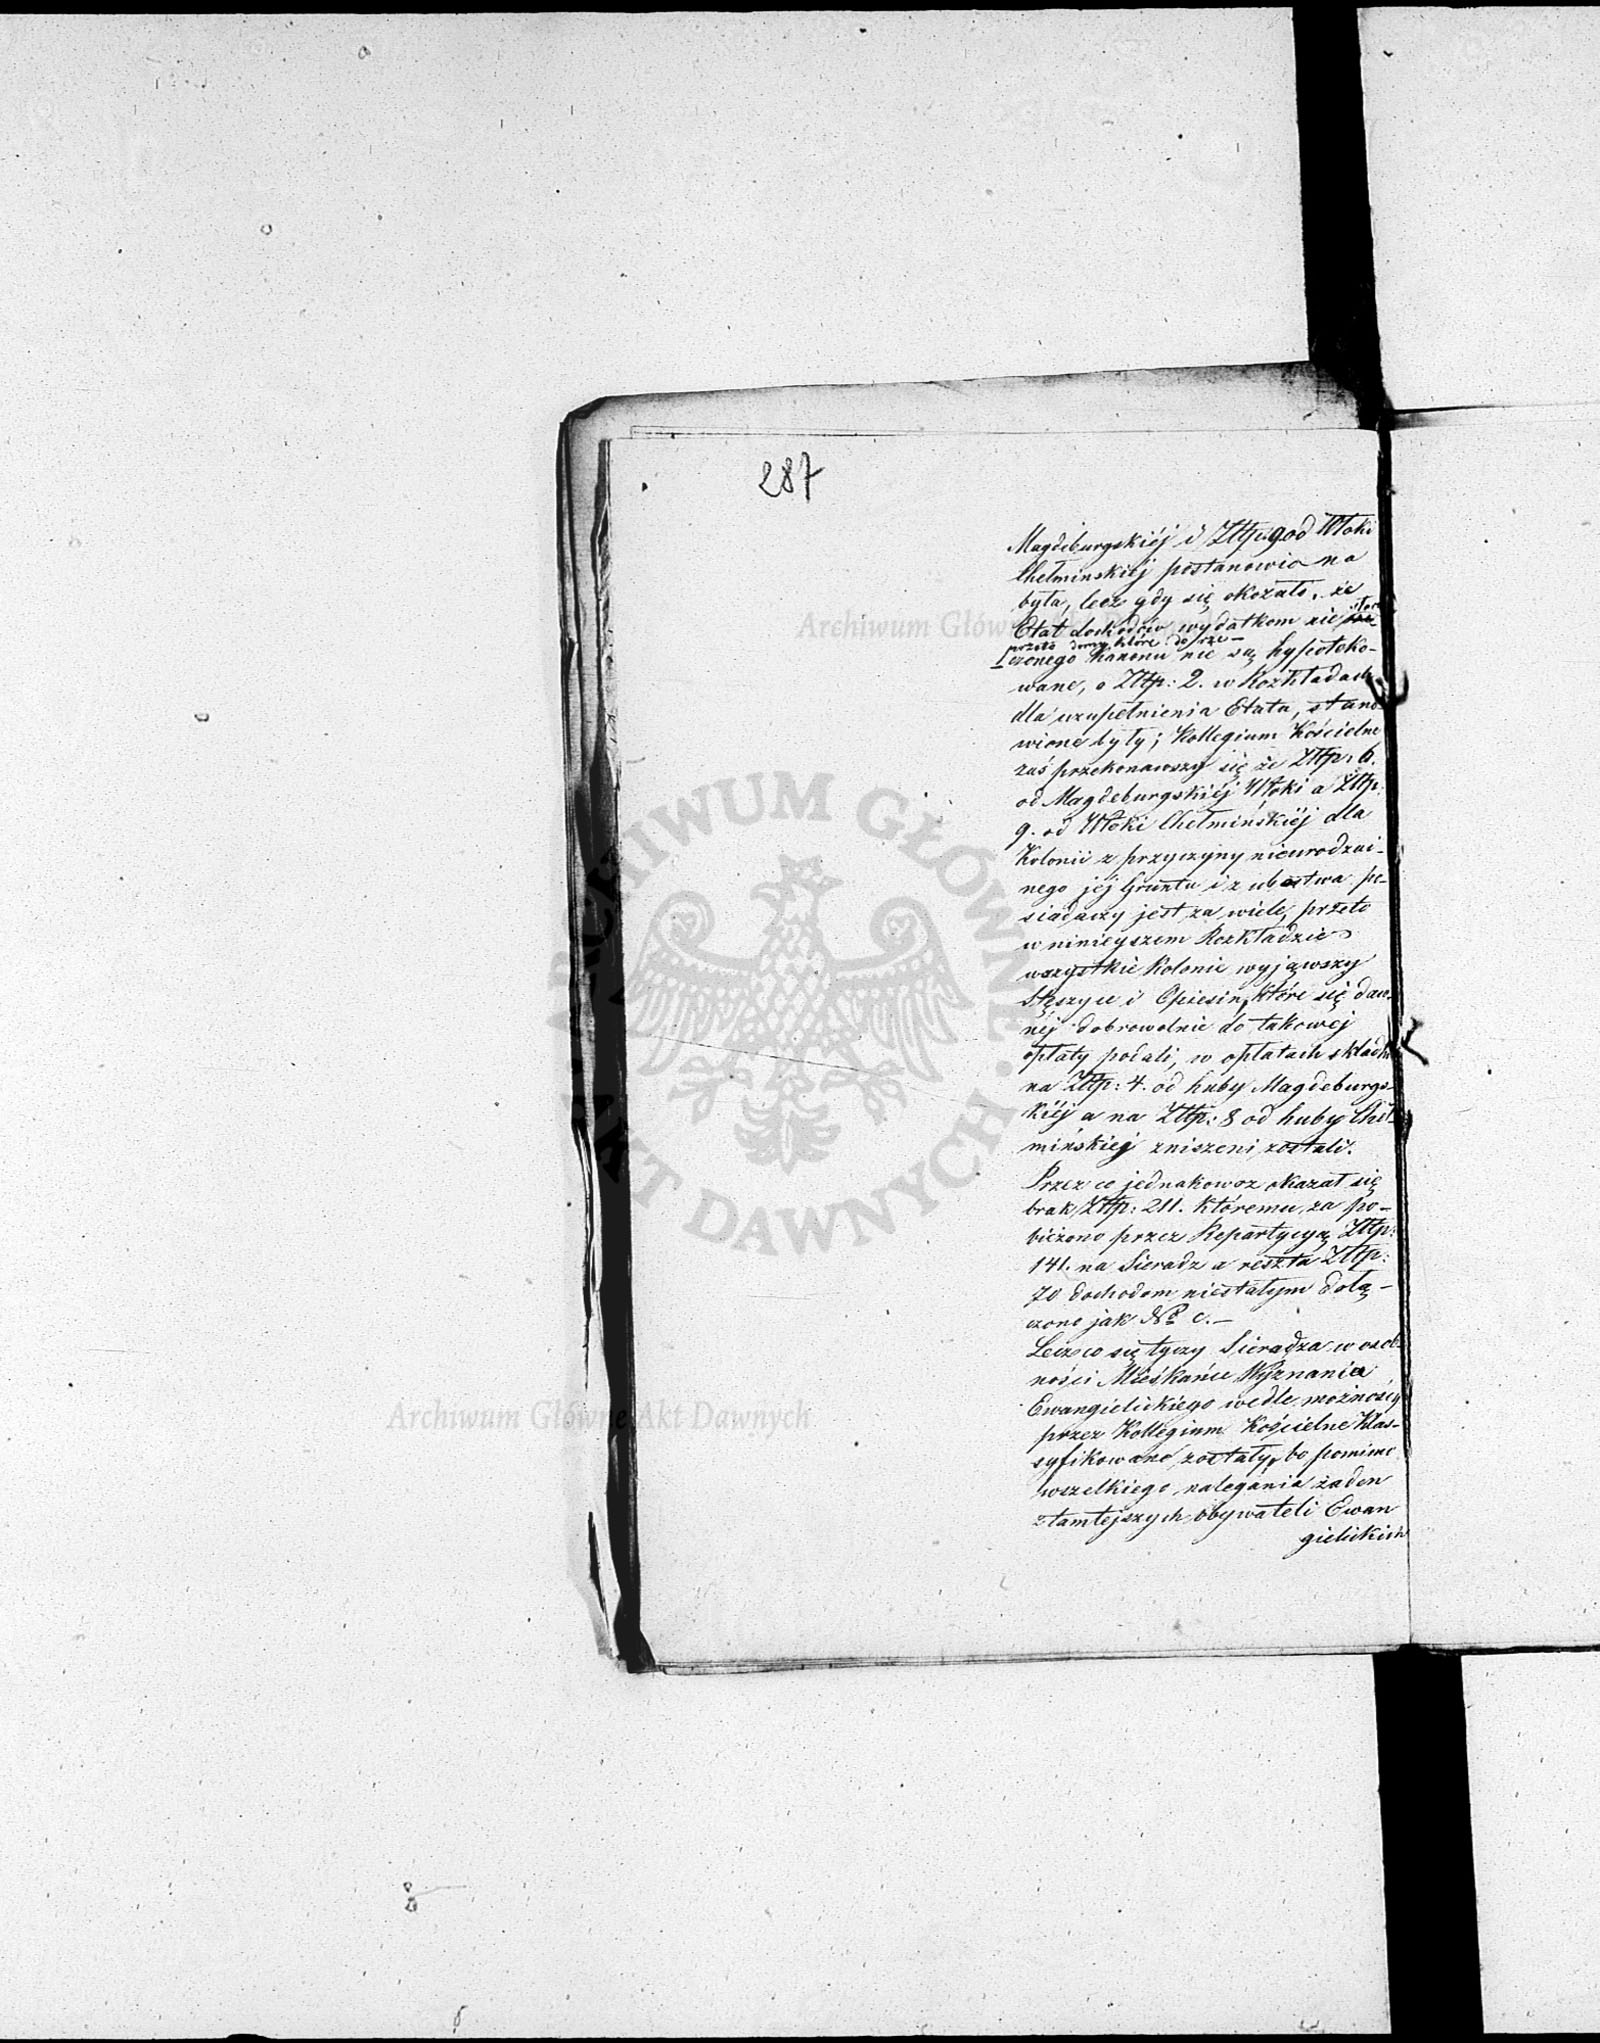 287
Magdeburgskiéj i Zltp: 9. od Włoki
Chełminskiéj postanowiona
była, lecz gdy się okazało, że
Etat dochodów wydatkom nie
przeto domy które do rze-
czonego Kanonu nie są hypoteko-
wane, o Zltp: 2. w Rozkładach
dla uzupełnienia Etatu, stano-
wione były; Kollegium Kościelne
zaś przekonawszy się że Zltp: 6.
od Magdeburgskiéj Włoki a Zltp:
9. od Włoki Chełmińskiéj dla
Kolonii z przyczyny nieurodzai-
nego jéj Gruntu i z ubostwa po-
siadaczy jest za wiele, przeto
w ninieyszem Rozkładzie
wszystkie Kolonie wyjąwszy
Stęszyce i Opiesin, które się daw-
néj dobrowolnie do takowéj
opłaty podali, w opłatach składki
na Zltp: 4. od huby Magdeburgs-
kiéj a na Zltp: 8 od huby Cheł-
mińskiej zniszeni zostali.
Przez co jednakowoz okazał się
brak Zltp: 211. któremu za po-
bieżono przez Repartycyą Zltp:
141. na Sieradz a reszta Zltp:
70 dochodom niestałym dołą-
czono jak No c. –
Lecz co się tyczy Sieradza w osob-
ności Mieśkańce Wyznania
Ewangielickiego wedle możności
przez Kollegium Kościelne Klas-
syfikowane zostały, bo pomimo
wszelkiego nalegania żaden
z tamtejszych obywateli Ewan
gielickich
Archiwum Główne Akt Dawnych
ARCHIWUM GŁÓWNE AKT DAWNYCH